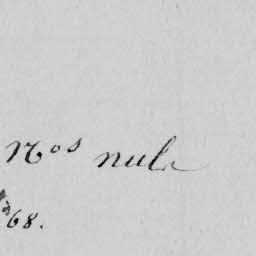 Nos nula
68.